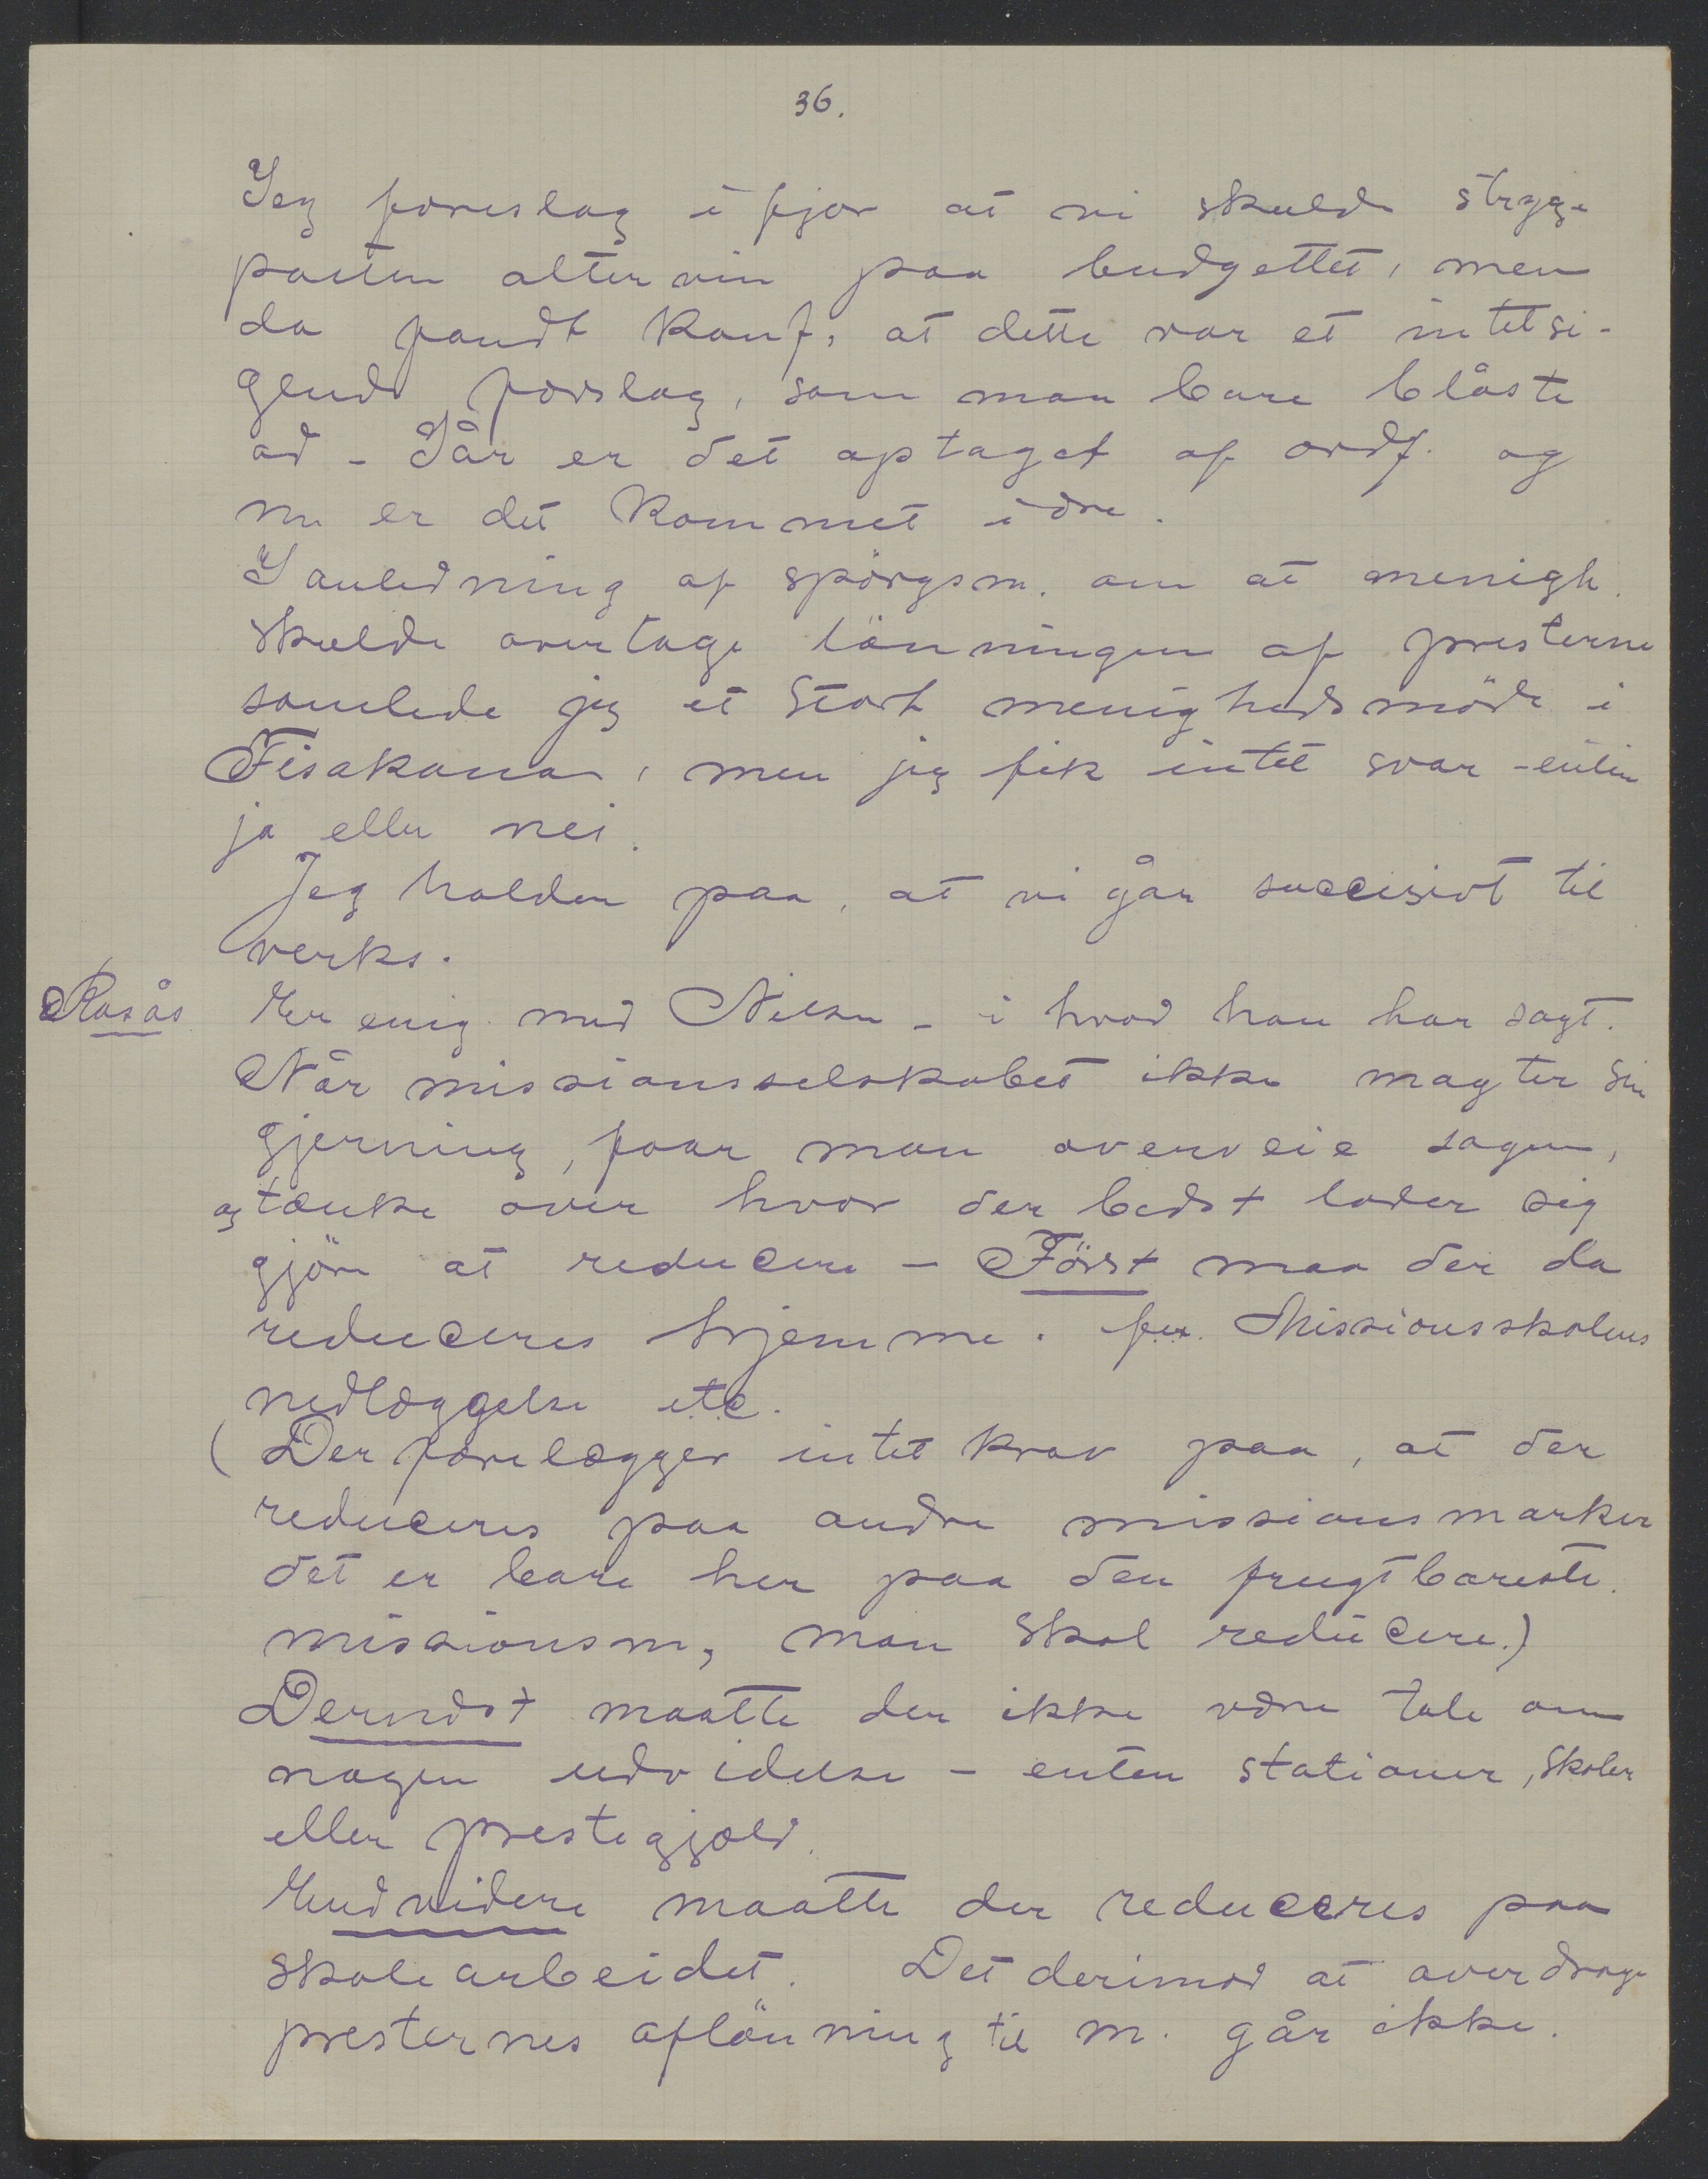 36.
Jeg foreslog i fjor at vi skulde stryge
posten altervin paa budgettet, men
da fandt konf, at dette var et intetsi-
gende forslag, som man bare blåste
ad - Iår er det optaget af ordf. og
nu er det kommet i den.
I anledning af spörgsm. om at menigh.
skulde overtage lönningen af presterne
samlede jeg et stort menighedsmöde i
Fisakana, men jeg fik intet svar - enten
ja eller nei.
Jeg holder paa, at vi går succesivt til
verks.
Rosås Er enig med Nilsen - i hvad han har sagt.
Når missionsselskabet ikke magter sin
gjerning, faar man overveie sagen,
og tænke over hvor der bedst lader sig
gjöre at reducere - Först maa der da
reduceres hjemme. f.ex. Missionsskolens
nedlæggelse etc.
(Der forelægger intet krav paa, at der
reduceres paa andre missionsmarker
det er bare her paa den frugtbareste
missionsm, man skal reducere.)
Dernæst maatte der ikke være tale om
nogen udvidelse - enten stationer, skoler
eller prestegjæld.
Endvidere maatte der reduceres paa
skolearbeidet. Det derimod at overdrage
presternes aflönning til m. går ikke.